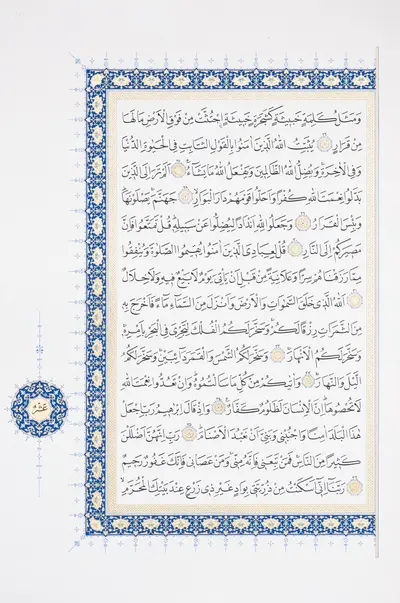 وَمَثَلُ كَلِمَةٍ خَبِيثَةٍ كَشَجَرَةٍ خَبِيثَةٍ اجْتُثَّتْ مِنْ فَوْقِ الْأَرْضِ مَا لَهَا
مِنْ قَرَارٍ يُثَبِّتُ اللَّهُ الَّذِينَ آمَنُوا بِالْقَوْلِ الثَّابِتِ فِي الْحَيَاةِ الدُّنْيَا
وَفِي الْآخِرَةِ وَيُضِلُّ اللَّهُ الظَّالِمِينَ وَيَفْعَلُ اللَّهُ مَا يَشَاءُ أَلَمْ تَرَ إِلَى الَّذِينَ
بَدَّلُوا نِعْمَتَ اللَّهِ كُفْرًا وَأَحَلُّوا قَوْمَهُمْ دَارَ الْبَوَارِ جَهَنَّمَ يَصْلَوْنَهَا
وَبِئْسَ الْقَرَارُ وَجَعَلُوا لِلَّهِ أَنْدَادًا لِيُضِلُّوا عَنْ سَبِيلِهِ قُلْ تَمَتَّعُوا فَإِنَّ
مَصِيرَكُمْ إِلَى النَّارِ قُلْ لِعِبَادِيَ الَّذِينَ آمَنُوا يُقِيمُوا الصَّلَاةَ وَيُنْفِقُوا
مِمَّا رَزَقْنَاهُمْ سِرًّا وَعَلَانِيَةً مِنْ قَبْلِ أَنْ يَأْتِيَ يَوْمٌ لَا بَيْعٌ فِيهِ وَلَا خِلَالٌ
اللَّهُ الَّذِي خَلَقَ السَّمَاوَاتِ وَالْأَرْضَ وَأَنْزَلَ مِنَ السَّمَاءِ مَاءً فَأَخْرَجَ بِهِ
مِنَ الثَّمَرَاتِ رِزْقًا لَكُمْ وَسَخَّرَ لَكُمُ الْفُلْكَ لِتَجْرِيَ فِي الْبَحْرِ بِأَمْرِهِ
وَسَخَّرَ لَكُمُ الْأَنْهَارَ وَسَخَّرَ لَكُمُ الشَّمْسَ وَالْقَمَرَ دَائِبَيْنِ وَسَخَّرَ لَكُمُ
اللَّيْلَ وَالنَّهَارَ وَآتَاكُمْ مِنْ كُلِّ مَا سَأَلْتُمُوهُ وَإِنْ تَعُدُّوا نِعْمَتَ اللَّهِ
لَا تُحْصُوهَا إِنَّ الْإِنْسَانَ لَظَلُومٌ كَفَّارٌ وَإِذْ قَالَ إِبْرَاهِيمُ رَبِّ اجْعَلْ
هَذَا الْبَلَدَ آمِنًا وَاجْنُبْنِي وَبَنِيَّ أَنْ نَعْبُدَ الْأَصْنَامَ رَبِّ إِنَّهُنَّ أَضْلَلْنَ
كَثِيرًا مِنَ النَّاسِ فَمَنْ تَبِعَنِي فَإِنَّهُ مِنِّي وَمَنْ عَصَانِي فَإِنَّكَ غَفُورٌ رَحِيمٌ
رَبَّنَا إِنِّي أَسْكَنْتُ مِنْ ذُرِّيَّتِي بِوَادٍ غَيْرِ ذِي زَرْعٍ عِنْدَ بَيْتِكَ الْمُحَرَّمِ
عشر